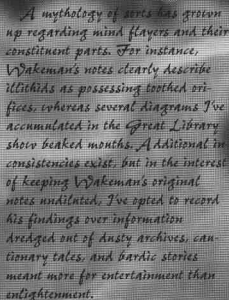 A mythology of sorts has grown
up regarding mind flayers and their
constituent parts. For instance,
Wakeman's notes clearly describe
illithids as possessing toothed ori-
fices, whereas several diagrams I've
accumulated in the Great Library
show beaked mouths. Additional in-
consistencies exist, but in the interest
of keeping Wakeman's original
notes undiluted, I've opted to record
his findings over information
dredged out of dusty archives, cau-
tionary tales, and bardic stories
meant more for entertainment than
enlightenment.